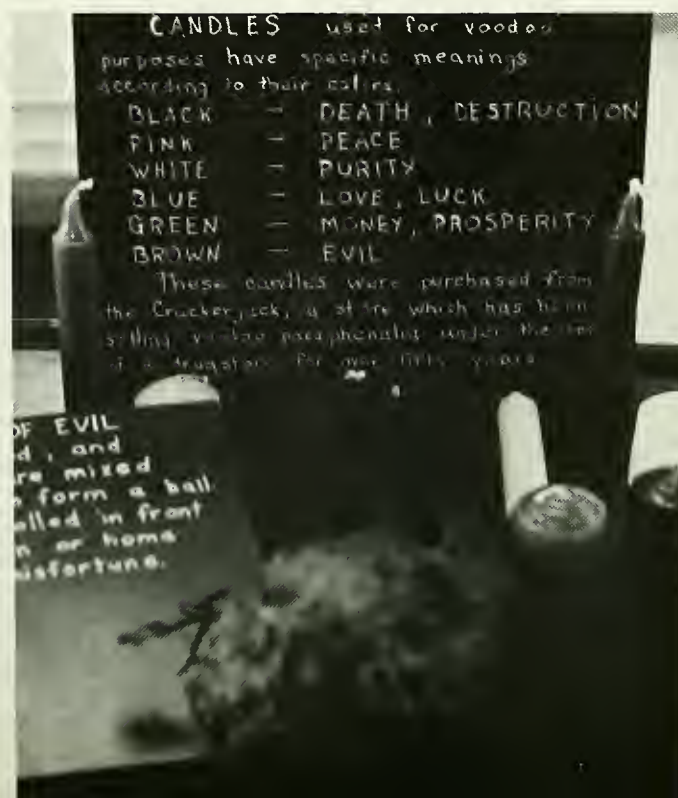 CANDLES used for voodoo
purposes have specific meanings
according to their colors.
BLACK — DEATH, DESTRUCTION
PINK — PEACE
WHITE — PURITY
BLUE — LOVE, LUCK
GREEN — MONEY, PROSPERITY
BROWN — EVIL
These candles were purchased from
the Crackerjack, a store which has been
selling voodoo paraphenalia under the
of a drugstore for over fifty years
OF EVIL
d, and
re mixed
form a ball
olled in front
n or home
isfortune.